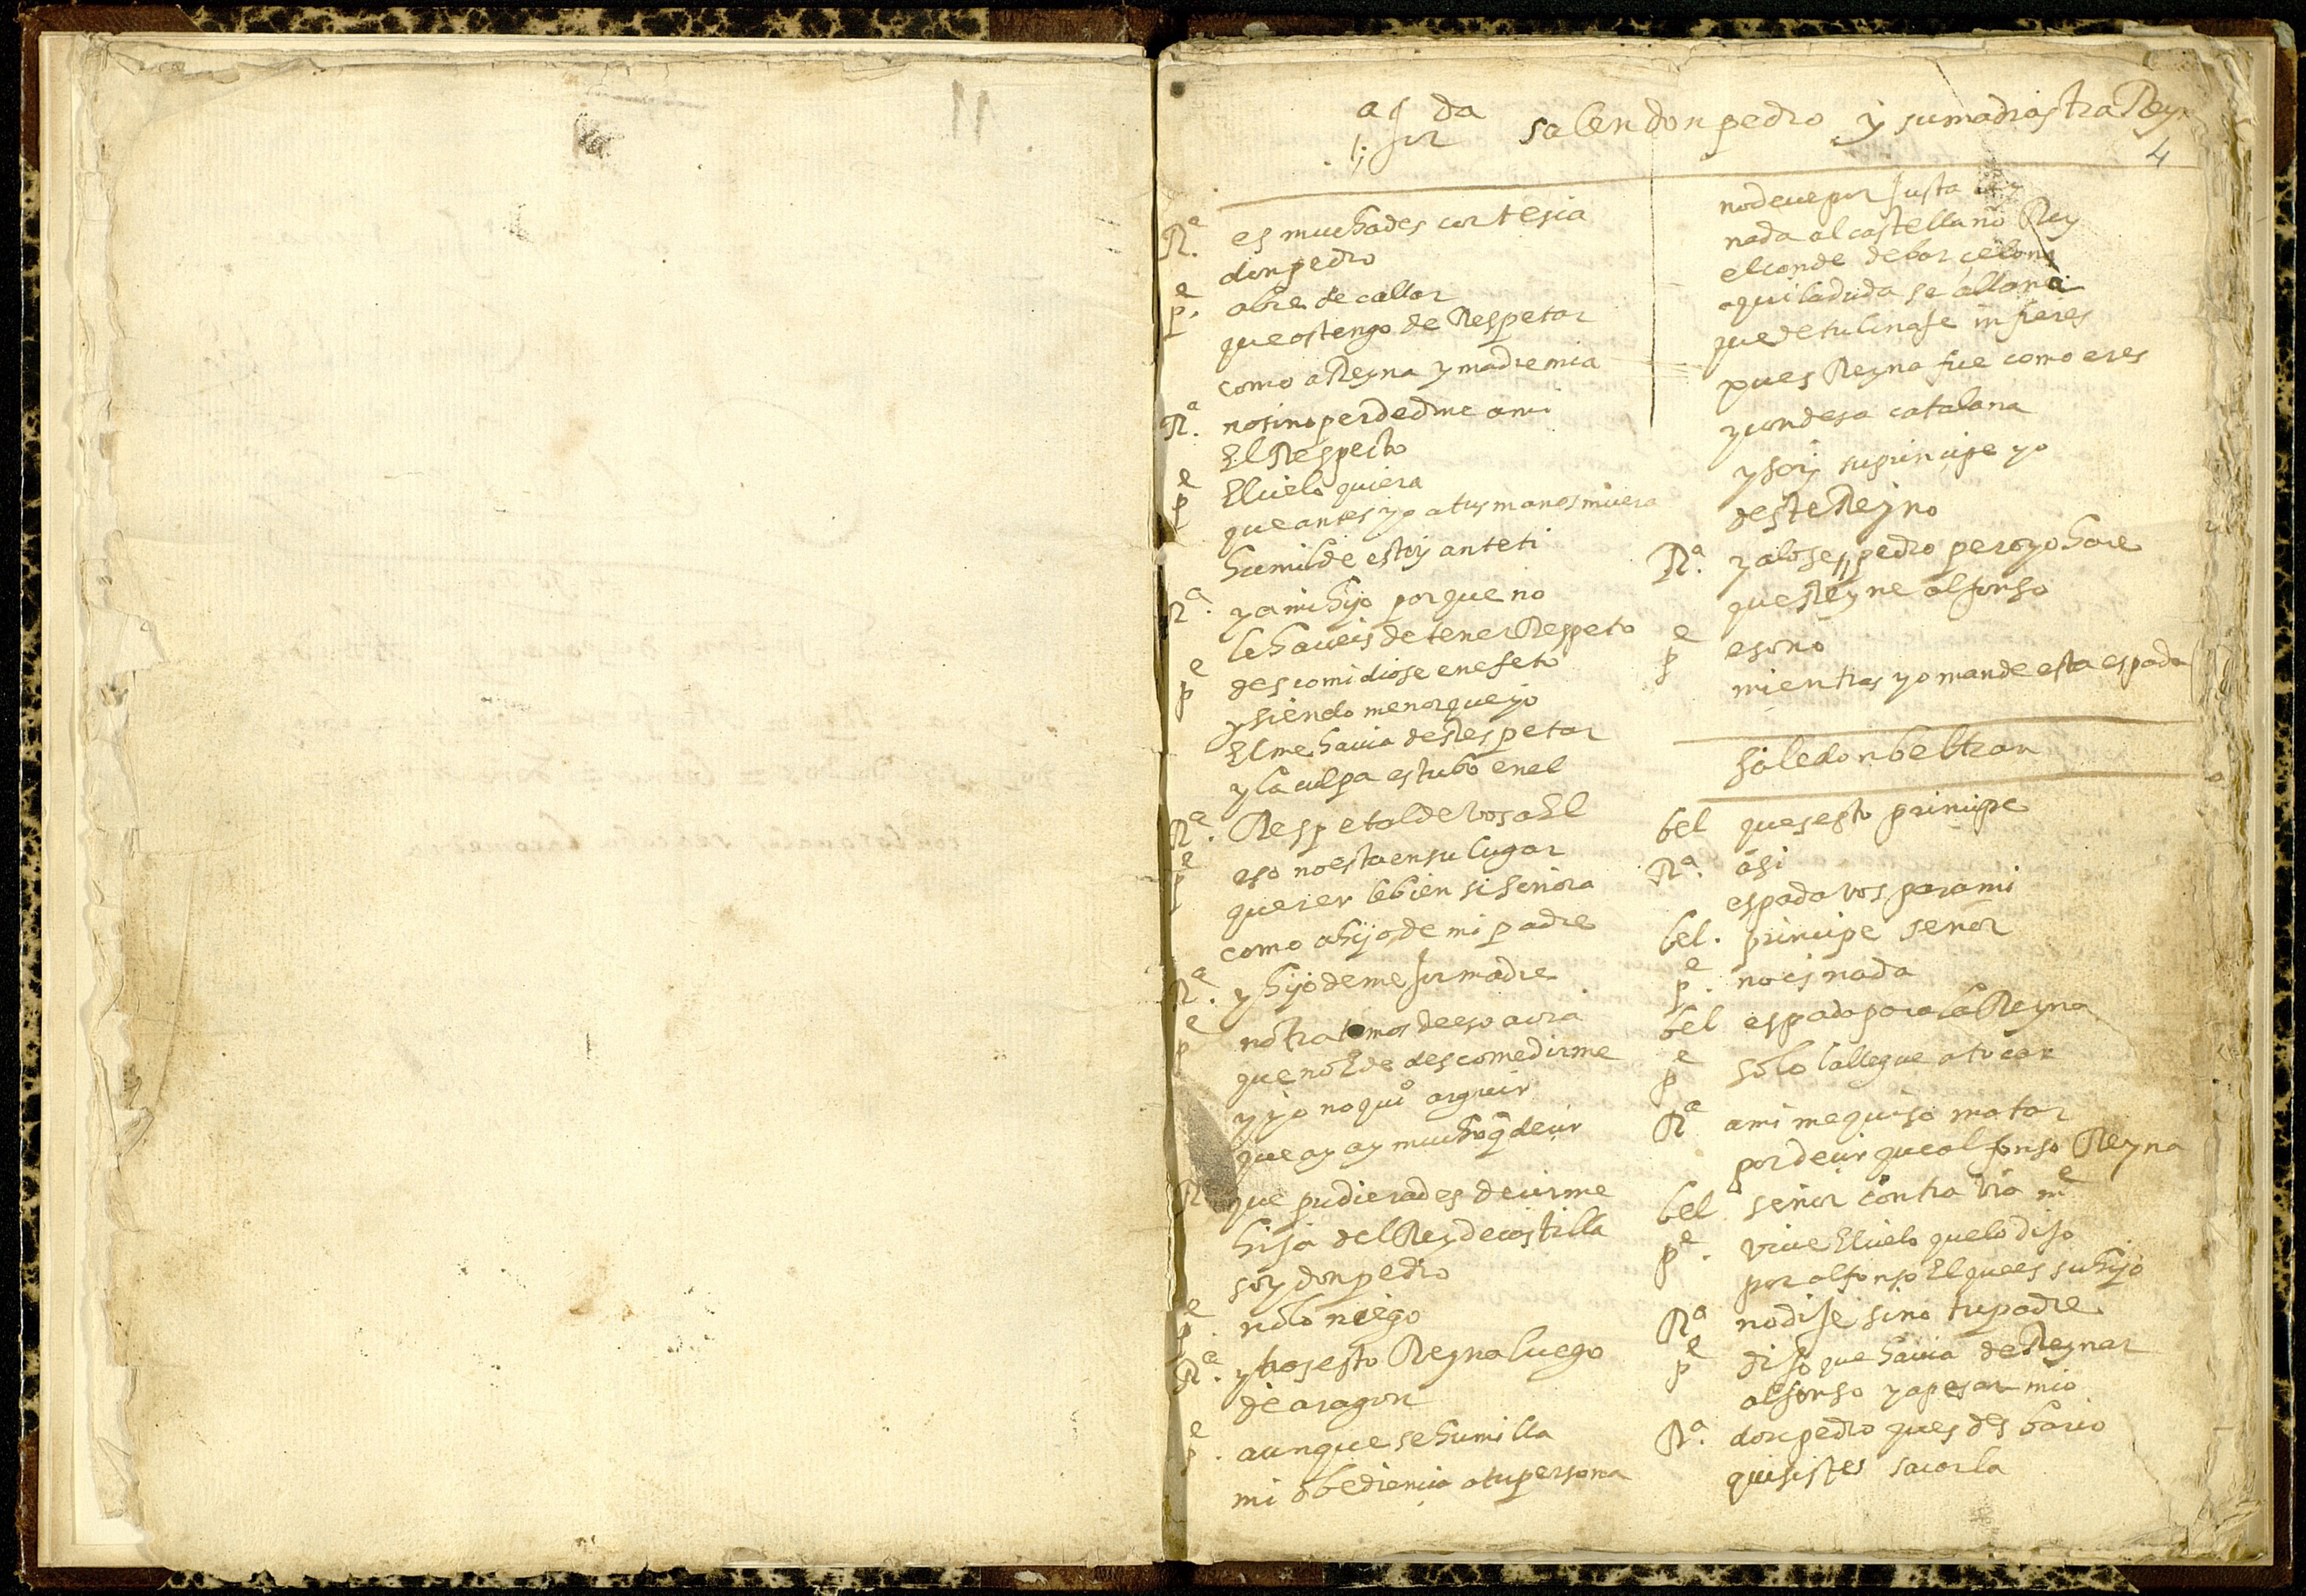 1ª Jorda salen don pedro y su madrastra Reyn
4
Rª. es mucha descortesia
don pedro
pe. abre de callar
que os tengo de Respetar
como a Reyna y madre mia
Rª. no sino perdedme a mi
El Respecto
pe El cielo quiera
que antes yo a tus manos muera
humilde estoy ante ti
Rª. y a mi hijo porque no
le haueis de tener Respeto
pe descomidiose en efeto
y siendo menor que yo
El me hauia de Respetar
y la culpa estubo en el
Rª. Respetalde vos a El
pe eso no esta en su lugar
querer le bien si señora
como a hijo de mi padre
Rª. y hijo de mejor madre
pe no tratemos de eso aora
que no E de descomedirme
y yo no quio arguir
que ay ay mucho q decir
R que pudierades decirme
hija del Rey de castilla
soy don pedro
pe. no lo niego
Rª. y tras esto Reyna luego
de aragon
pe. aunque se humilla
mi obediencia a tu persona
no deue por justa ley
nada al castellano Rey
el conde de barcelona
aqui la duda se allana
que de tu linaje infieres
pues Reyna fue como eres
y condesa catalana
y soy su principe yo
deste Reyno
Rª. ya lo se pedro pero yo hare
que Reyne alfonso
pe eso no
mientras yo mande esta espada
sale don beltran
bel ques esto principe
Rª. asi
espada vos para mi
bel. principe señor
pe. no es nada
bel espada para la Reyna
pe solo la llegue a tocar
Rª a mi me quiso matar
por decir que alfonso Reyna
bel señor contra vra me
pe. viue El cielo que lo dijo
por alfonso El que es su hijo
Rª no dije sino tu padre
pe dijo que hauia de Reynar
alfonso y a pesar mio
Rª. don pedro ques desbario
quisistes sacarla